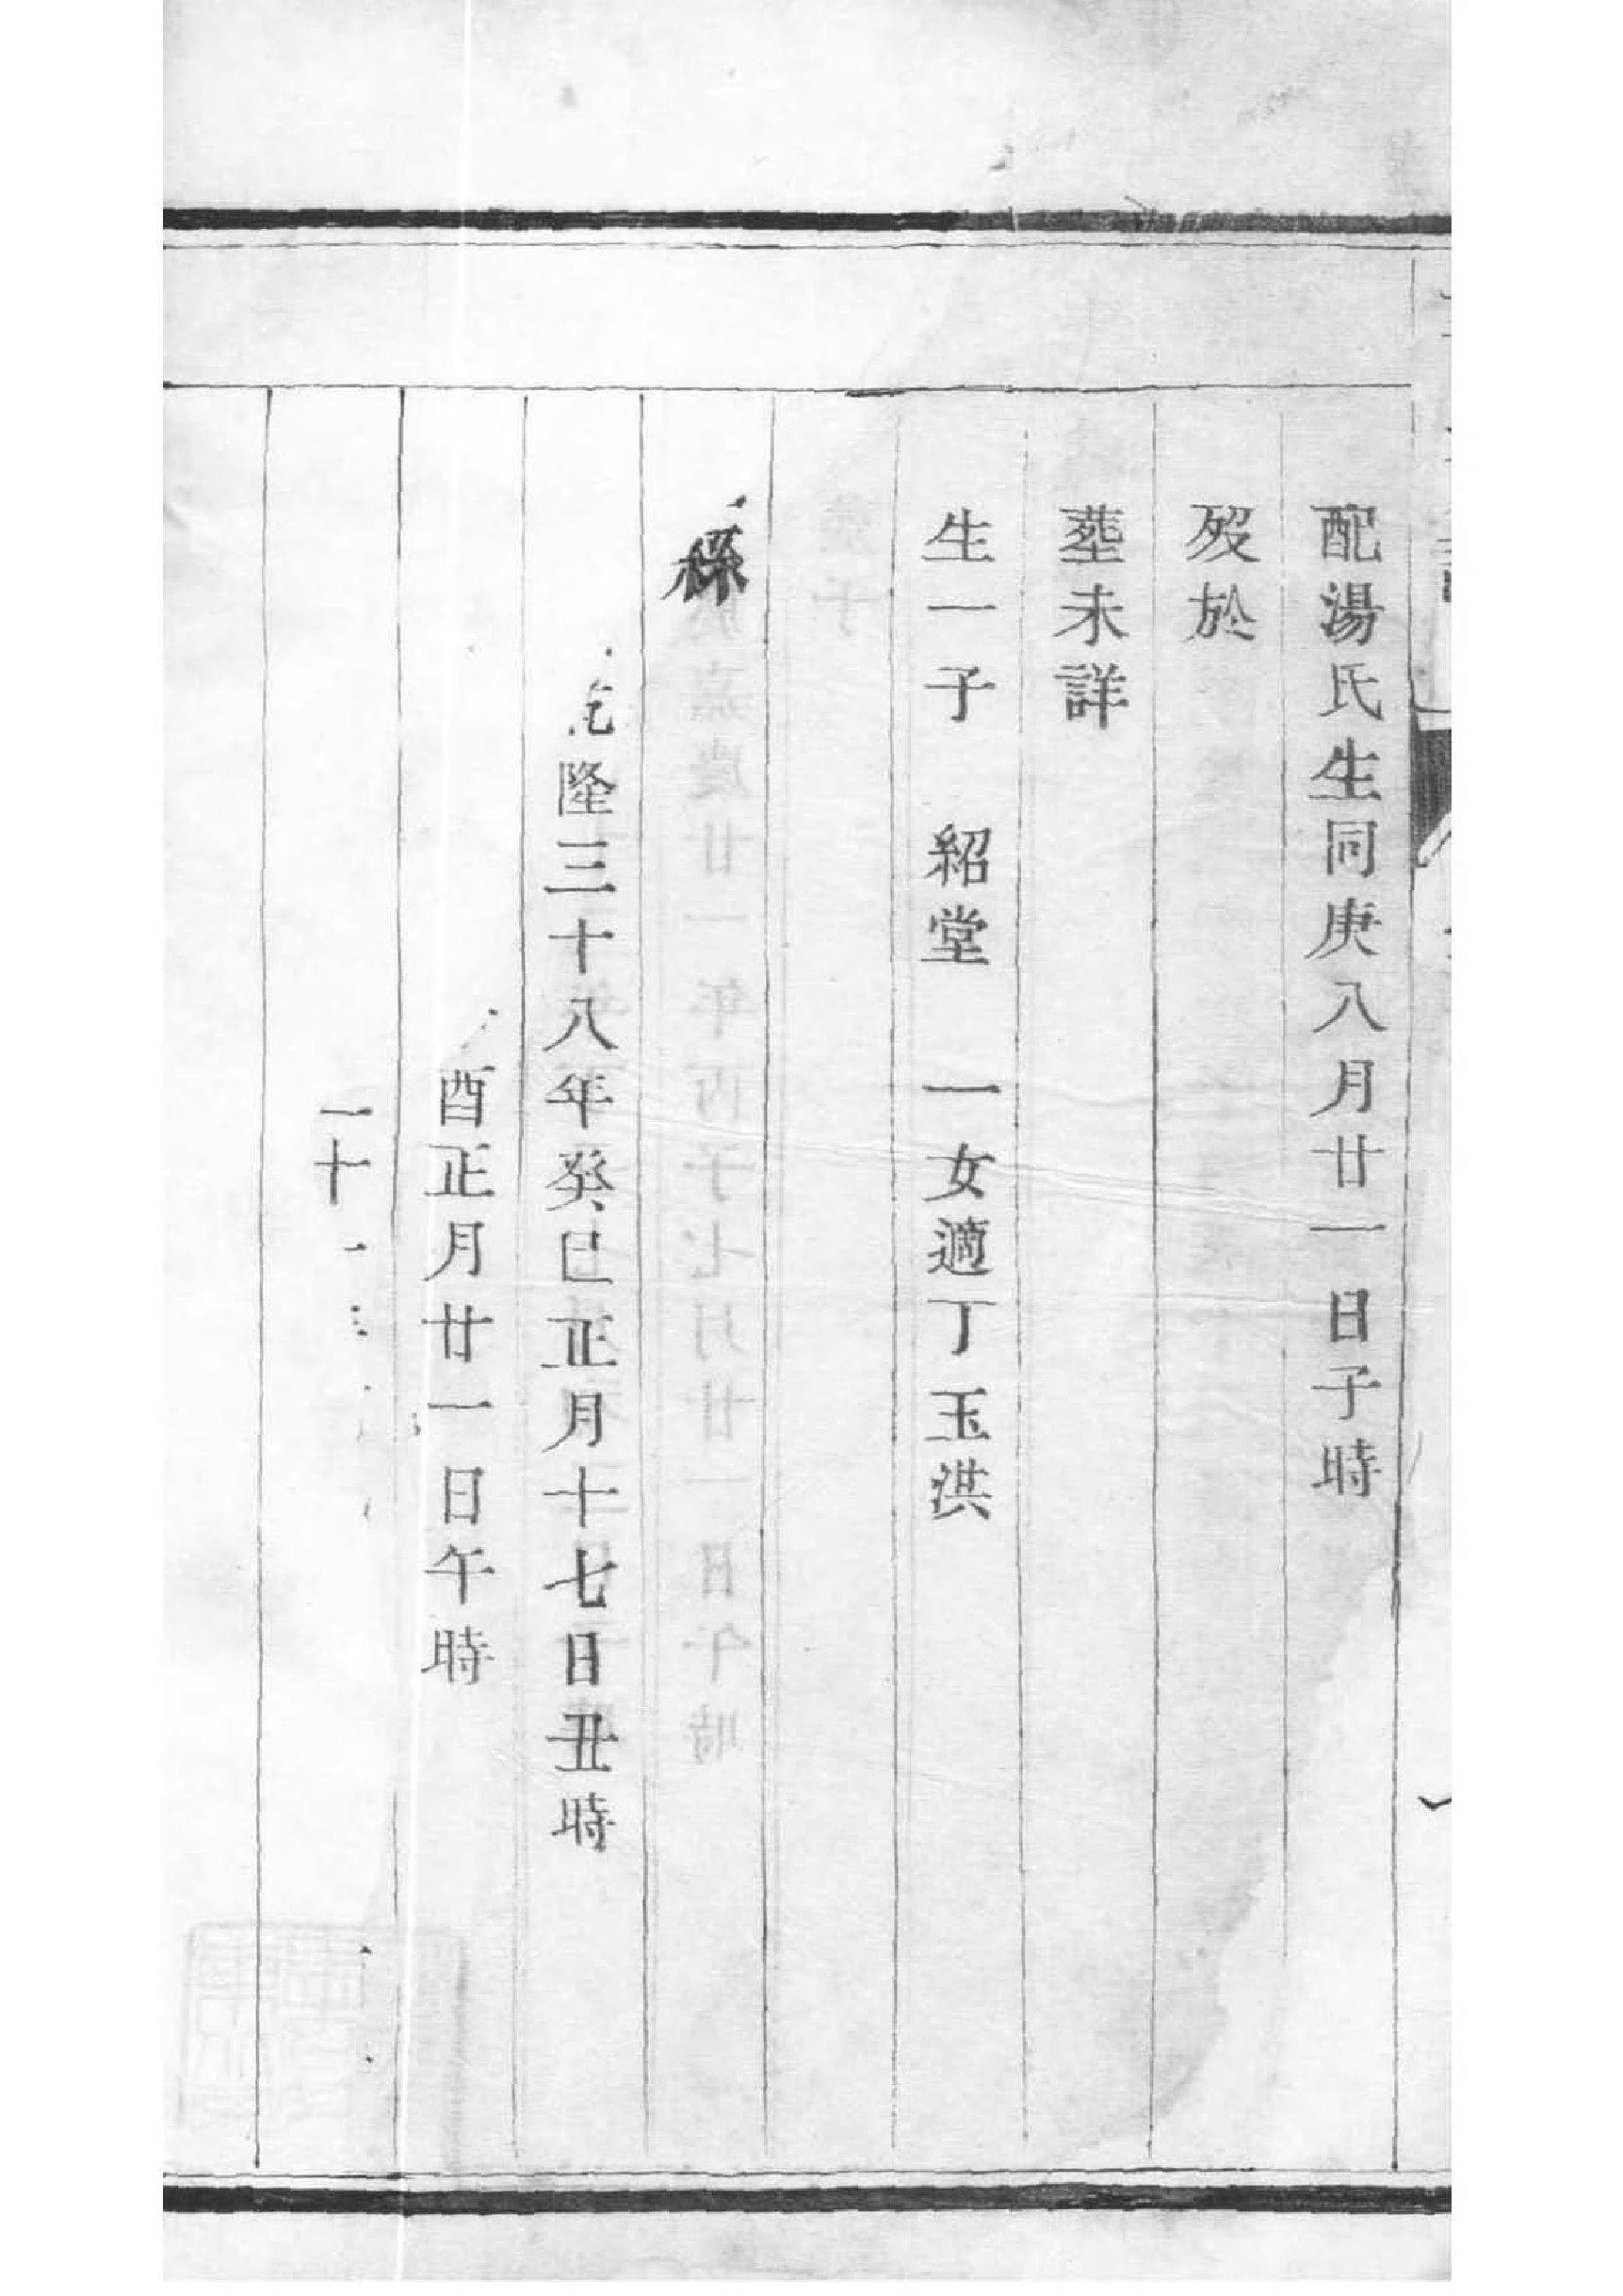 配湯氏生同庚八月廿一日子時
歿於
葬未詳
生一子 紹堂 一女適丁玉洪
孫
乾隆三十八年癸巳正月十七日丑時
酉正月廿一日午時
十